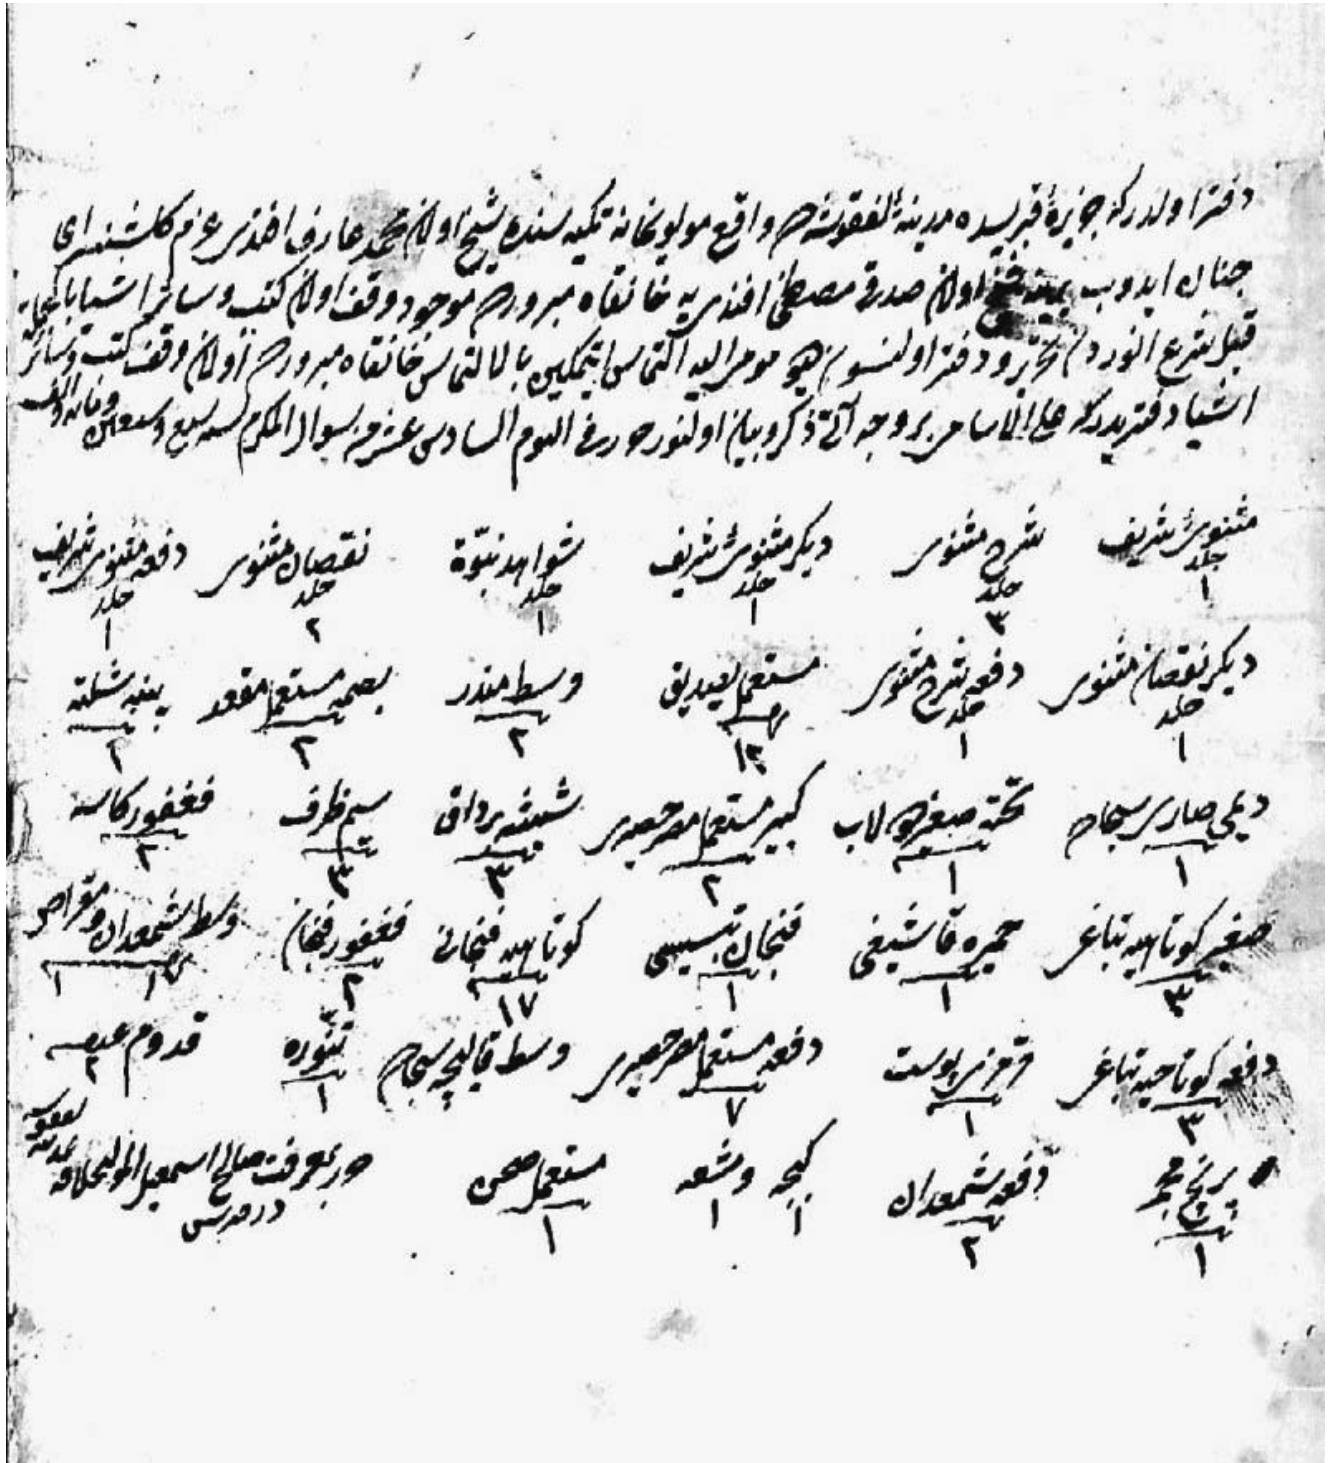 دفتر اولدركه جزيرهٔ قبريسده مدينهٔ لفقوشه ده واقع مولويخانه تكيه سنده شيخ اولان محمد عارف افندى عزم كلشنسراى
جنان ايدوب يرينه شيخ اولان صدقى مصطفى افندى يه خانقاه مزبورده موجود وقف اولان كتب وسائر اشيا
قبل شرع انوردن تحرير ودفتر اولنسون ديو مومى اليه التماس ايتمكين بالالتماس خانقاه مزبورده اولان وقف كتب وسائر
اشيا دفتريدركه على الاسامى بروجه آتى ذكر وبيان اولنور حرر فى اليوم السادس عشر من شوال المكرم سنه سبع وسبعين ومائه والف
مثنوئ شريف جلد ١ شرح مثنوى جلد ٣ ديكر مثنوئ شريف جلد ١ شواهد نبوّة جلد ١ نقصان مثنوى جلد ٢ دفعه مثنوى شريف جلد ١
ديكر نقصان مثنوى جلد ١ دفعه شرح مثنوى جلد ١ مستعمل ١٢ وسط مندر ٢ بصمه مستعمل مقعد ٢ پنبه شلته ٢
صارى سجاده ١ تخته صغير دولاب ١ كبير مستعمل مصر حصيرى ٢ شيشه برداق ٣ سيم ظرف ٣ فغفور كاسه ٢
صغير كوتاهيه تباغى ٣ قاشيغى ١ فنجان تبسيسى ١ كوتاهيه فنجانى ١٧ فغفور فنجان ٢ وسط شمعدان ومقراص ١ ١
دفعه كوتاحيه تباغى ٣ قرمزى پوست ١ دفعه مستعمل مصر حصيرى ٧ وسط قاليچه سجاده تنّوره ١ قدوم عدد ٢
برنج مجمر ١ دفعه شمعدان ٢ كپچه ومشعه ١ ١ مستعمل صحن ١ حرر بمعرفت صالح اسمعيل المولى خلافه بمدينه لفقوشه